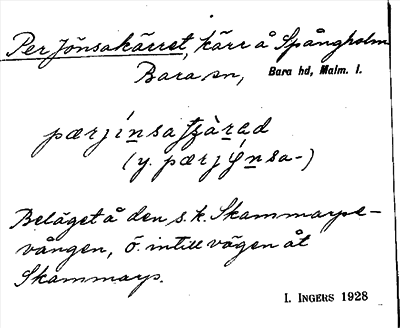 Per Jönsakärret, kärr å Spångholm
Bara sn, Bara hd, Malm. l.
pærjín̠sa
(y. pærjýn̠sa-)
Beläget å den s.k. Skammarps-
vången, ö. intill vägen åt
Skammarp.
I. INGERS 1928